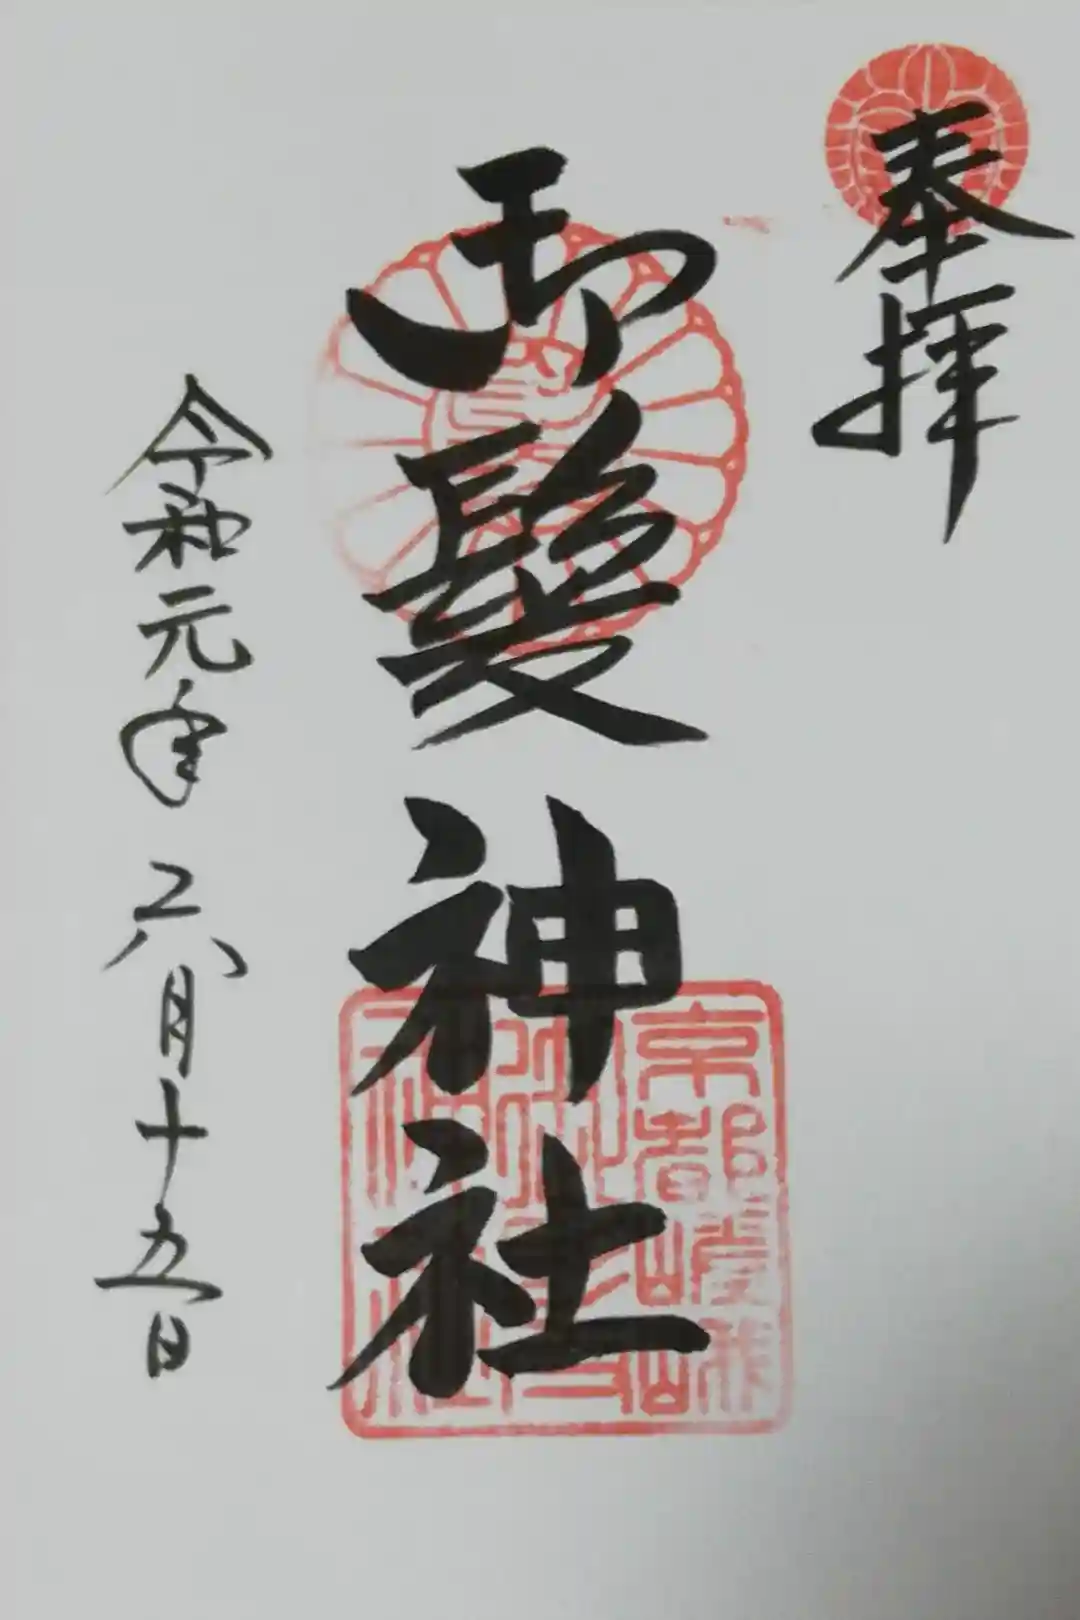 奉拝
御髪神社
京都嵯峨
神社
令和元年六月十五日